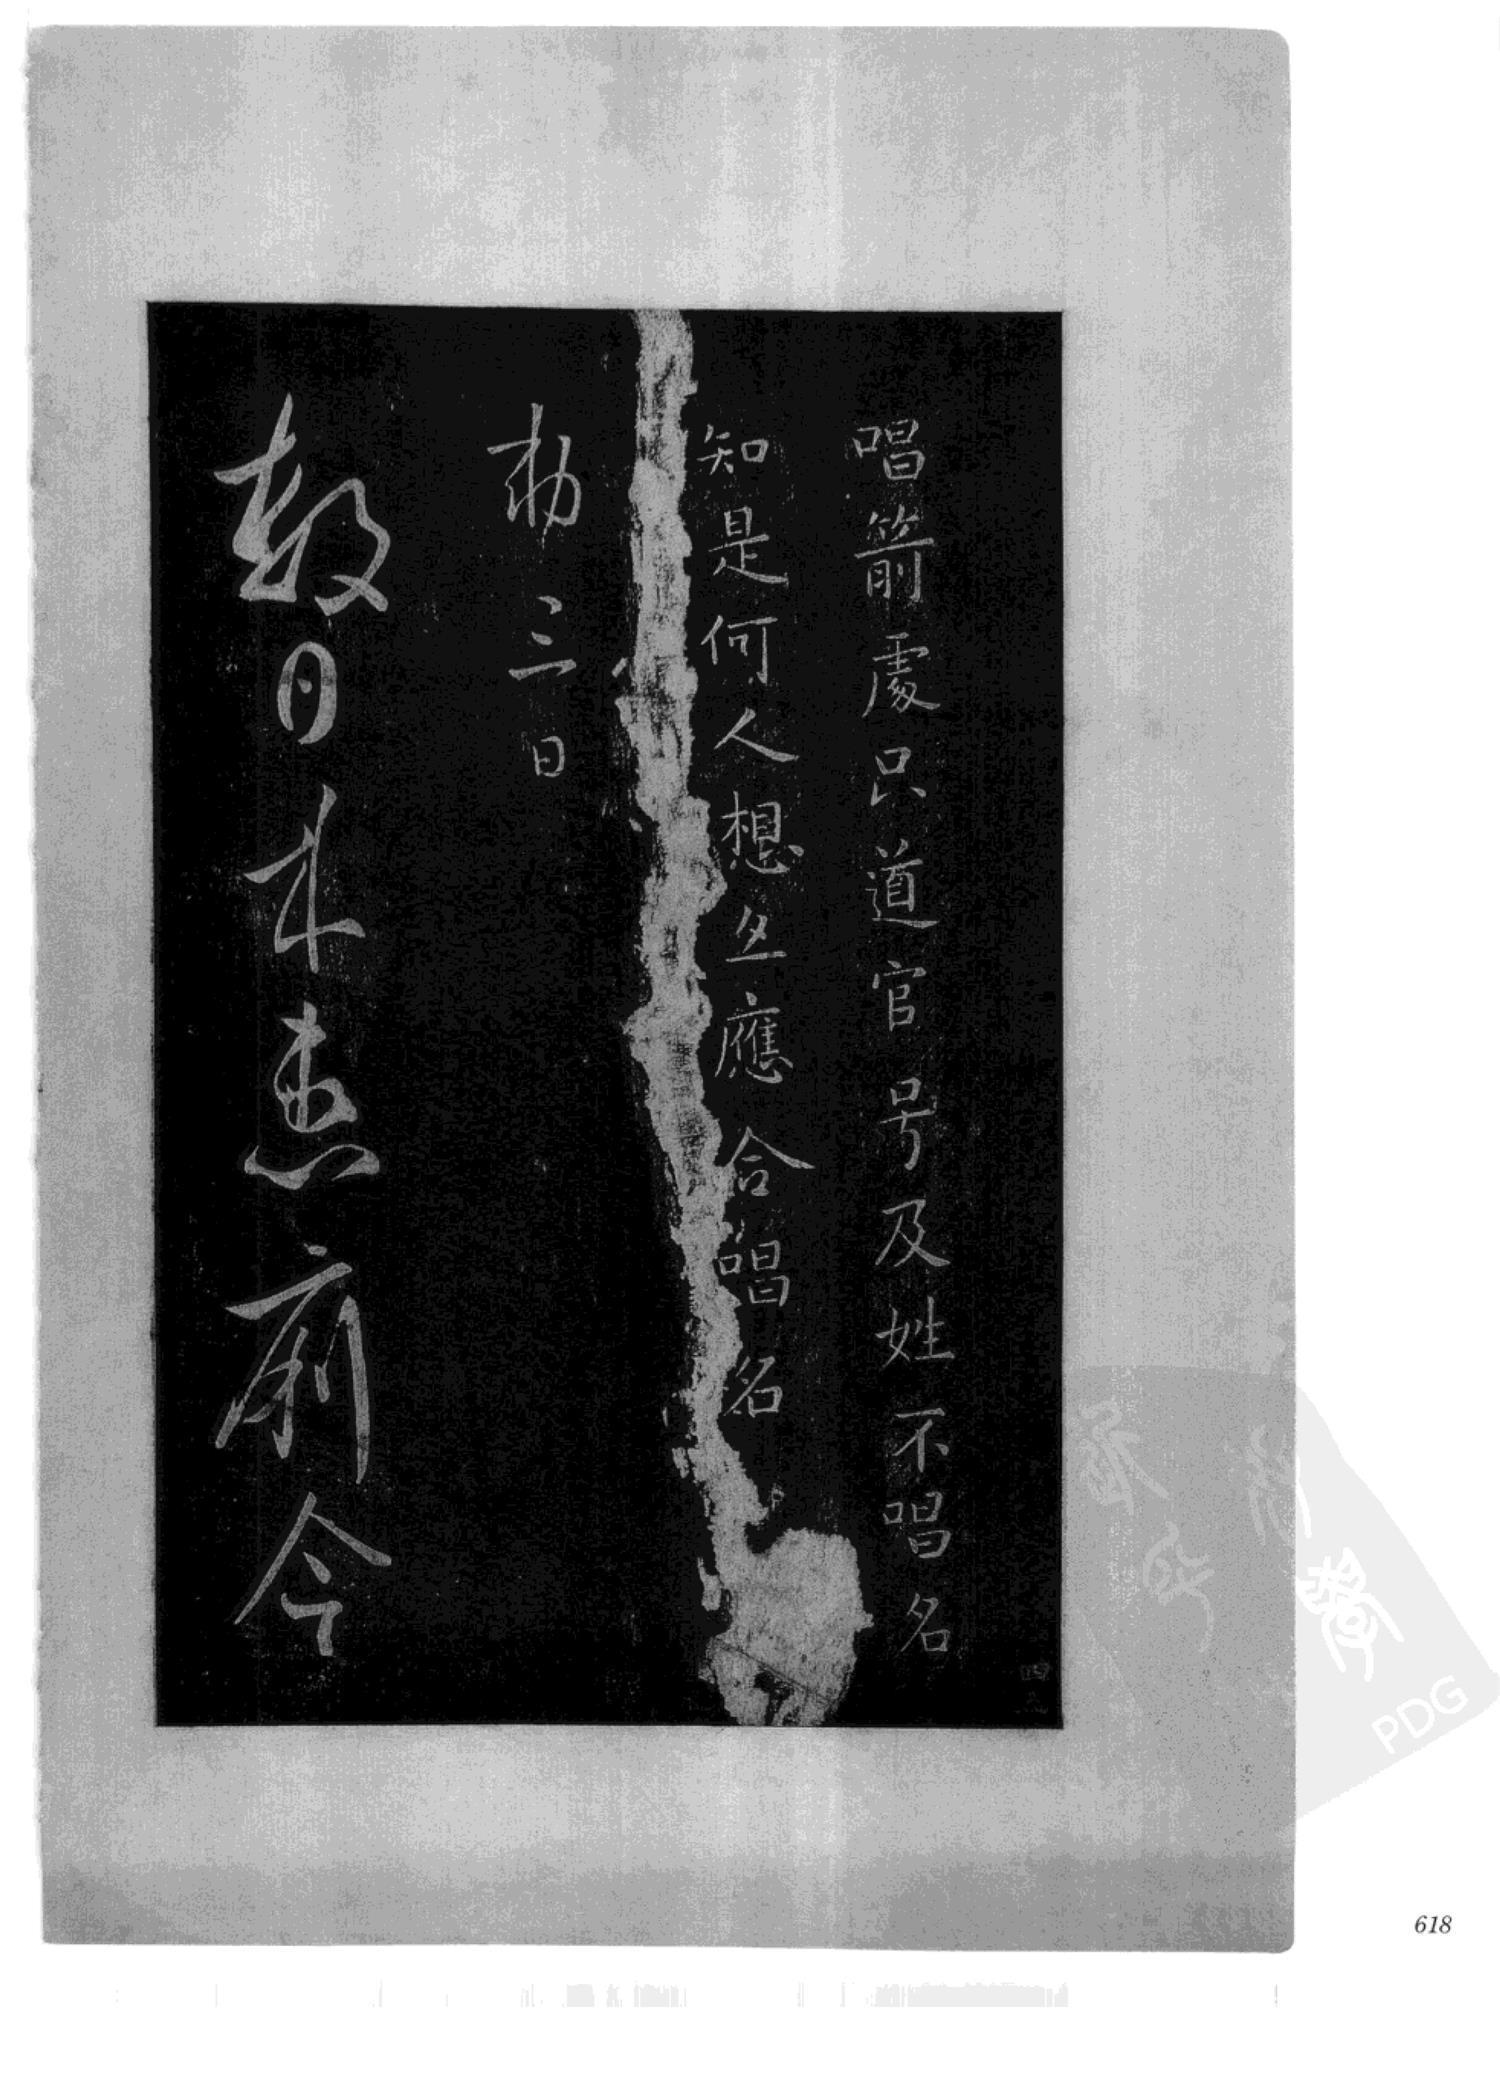 唱箭處只道官号及姓不唱名
知是何人想應合唱名
勅三日
數日來患痢今
四
PDG
618